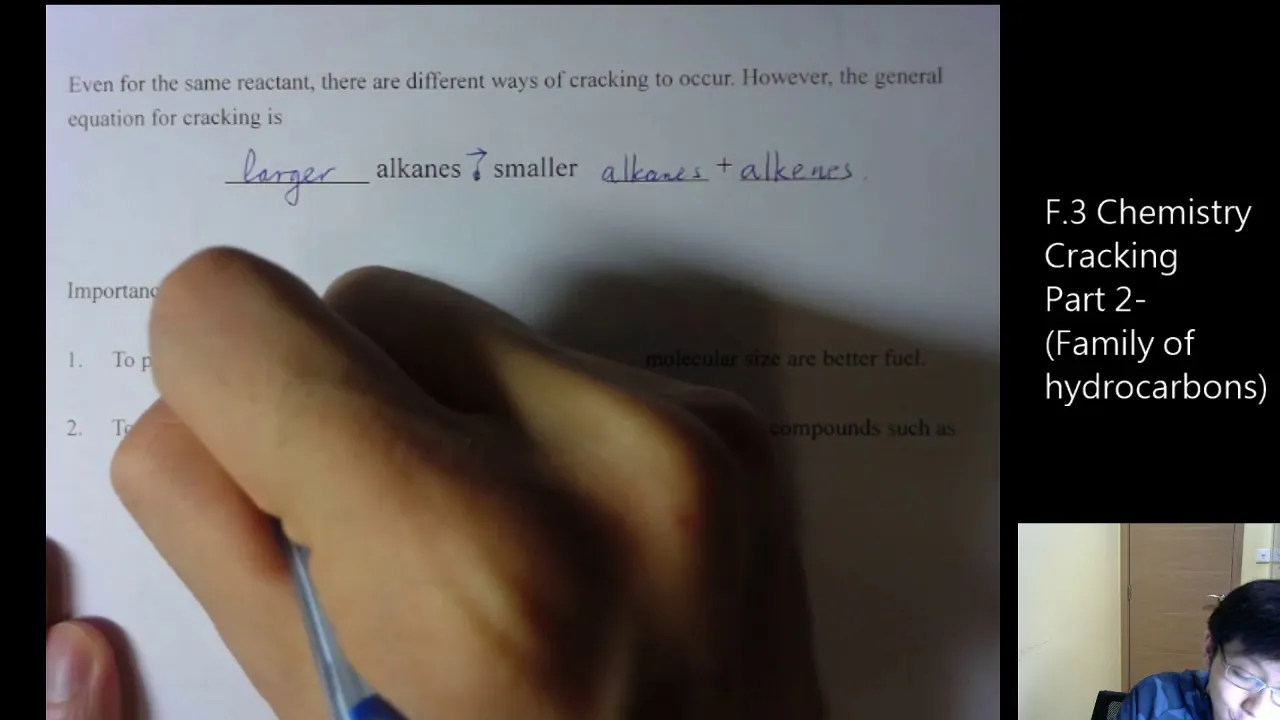 Even for the same reactant, there are different ways of cracking to occur. However, the general
equation for cracking is
larger alkanes → smaller alkanes + alkenes.
Importanc
1. To p molecular size are better fuel.
2. To compounds such as
F.3 Chemistry
Cracking
Part 2-
(Family of
hydrocarbons)